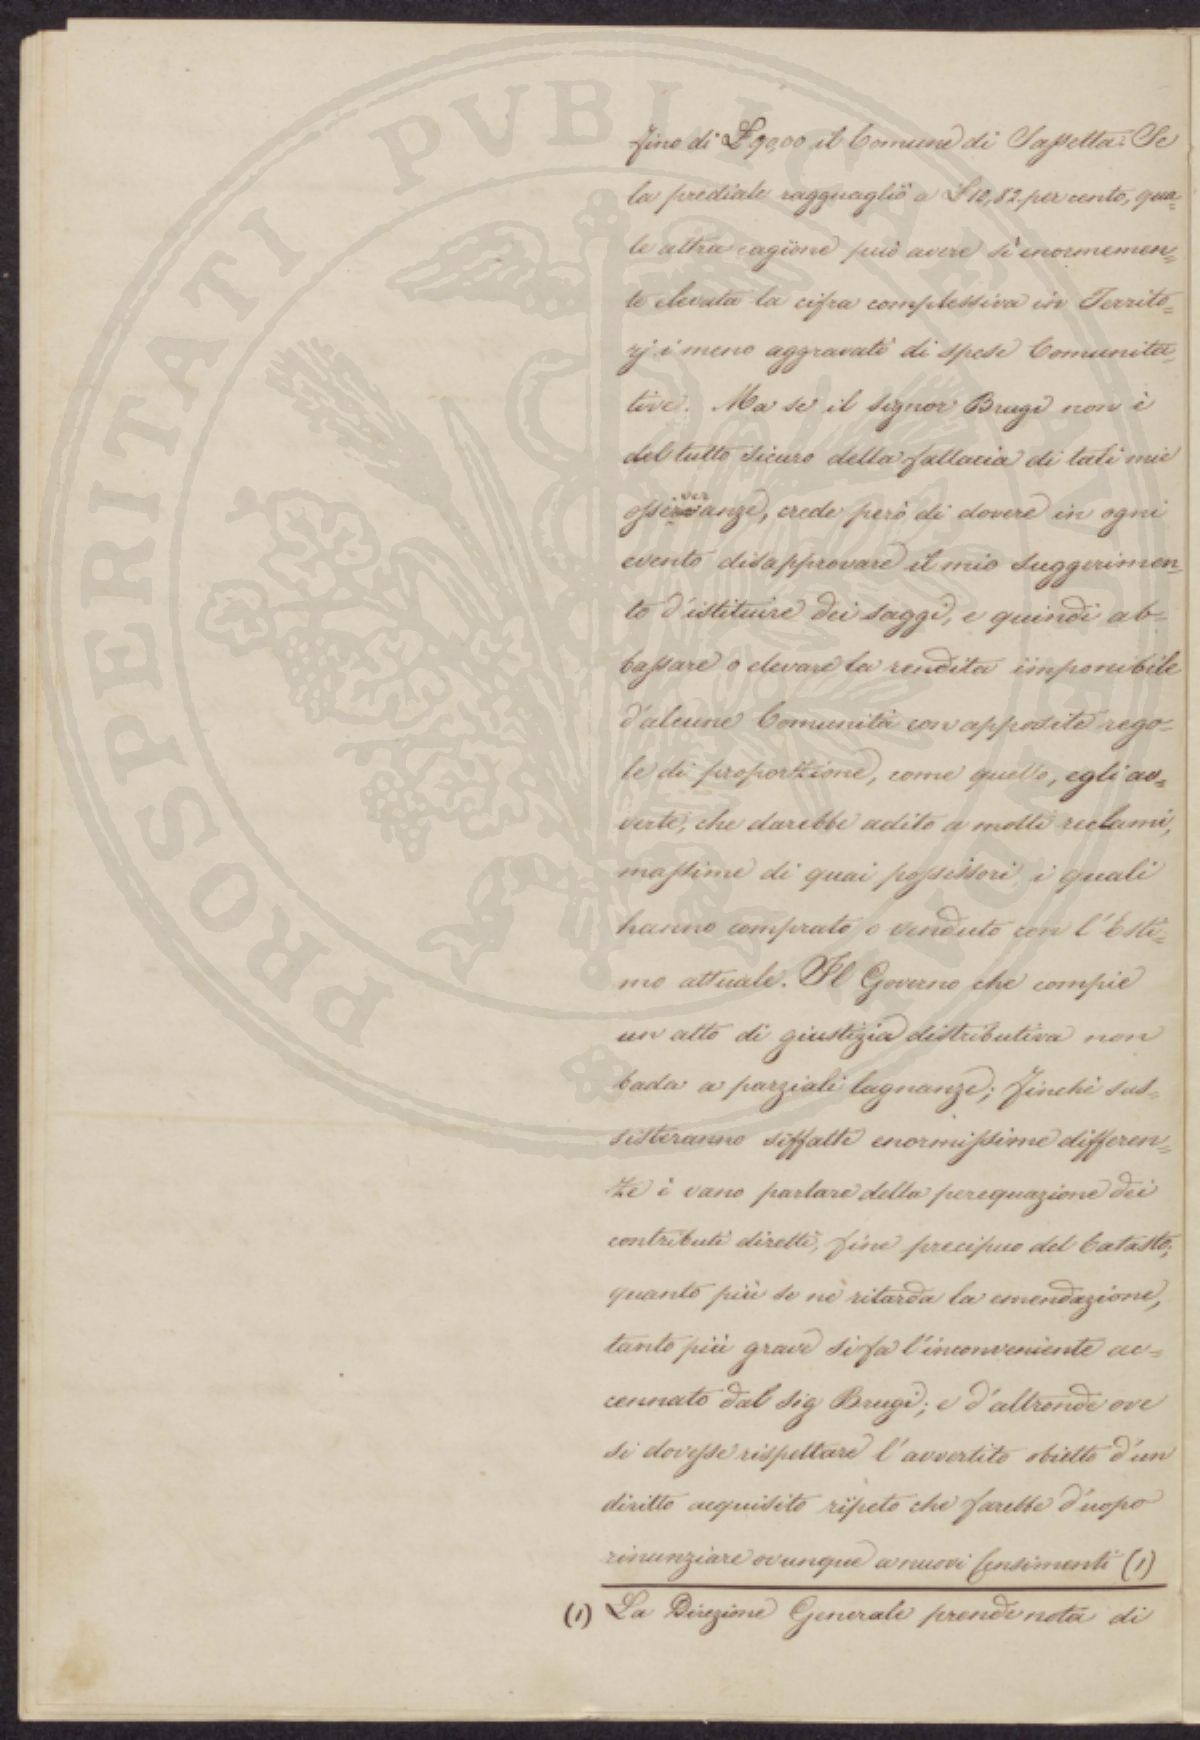 PROSPERITATI PUBLICAE AUGENDAE
fino di £ 90,00 il Comune di Sassetta. Se
la prediale ragguagliò a £ 10,82 per cento, qua=
le altra cagione può avere sì enormemen=
te elevata la cifra complessiva in Territo=
rj i meno aggravati di spese Comunita=
tive. Ma se il signor Brugi non è
del tutto sicuro della fallacia di tali mie
osservanze, crede però di dovere in ogni
evento disapprovare il mio suggerimen=
to d'istituire dei saggi, e quindi ab=
bassare o elevare la rendita imponibile
d'alcune Comunità con apposite rego=
le di proporzione, come quello, egli av=
verte, che darebbe adito a molti reclami,
massime di quai possessori i quali
hanno comprato o venduto con l'Esti=
mo attuale. Il Governo che compie
un atto di giustizia distributiva non
bada a parziali lagnanze; finchè sus=
sisteranno siffatte enormissime differen=
ze è vano parlare della perequazione dei
contributi diretti, fine precipuo del Catasto;
quanto più se ne ritarda la emendazione,
tanto più grave si fa l'inconveniente ac=
cennato dal sig Brugi; e d'altronde ove
si dovesse rispettare l'avvertito obietto d'un
diritto acquisito ripeto che farebbe d'uopo
rinunziare ovunque a nuovi Censimenti (1)
(1) La Direzione Generale prende nota di